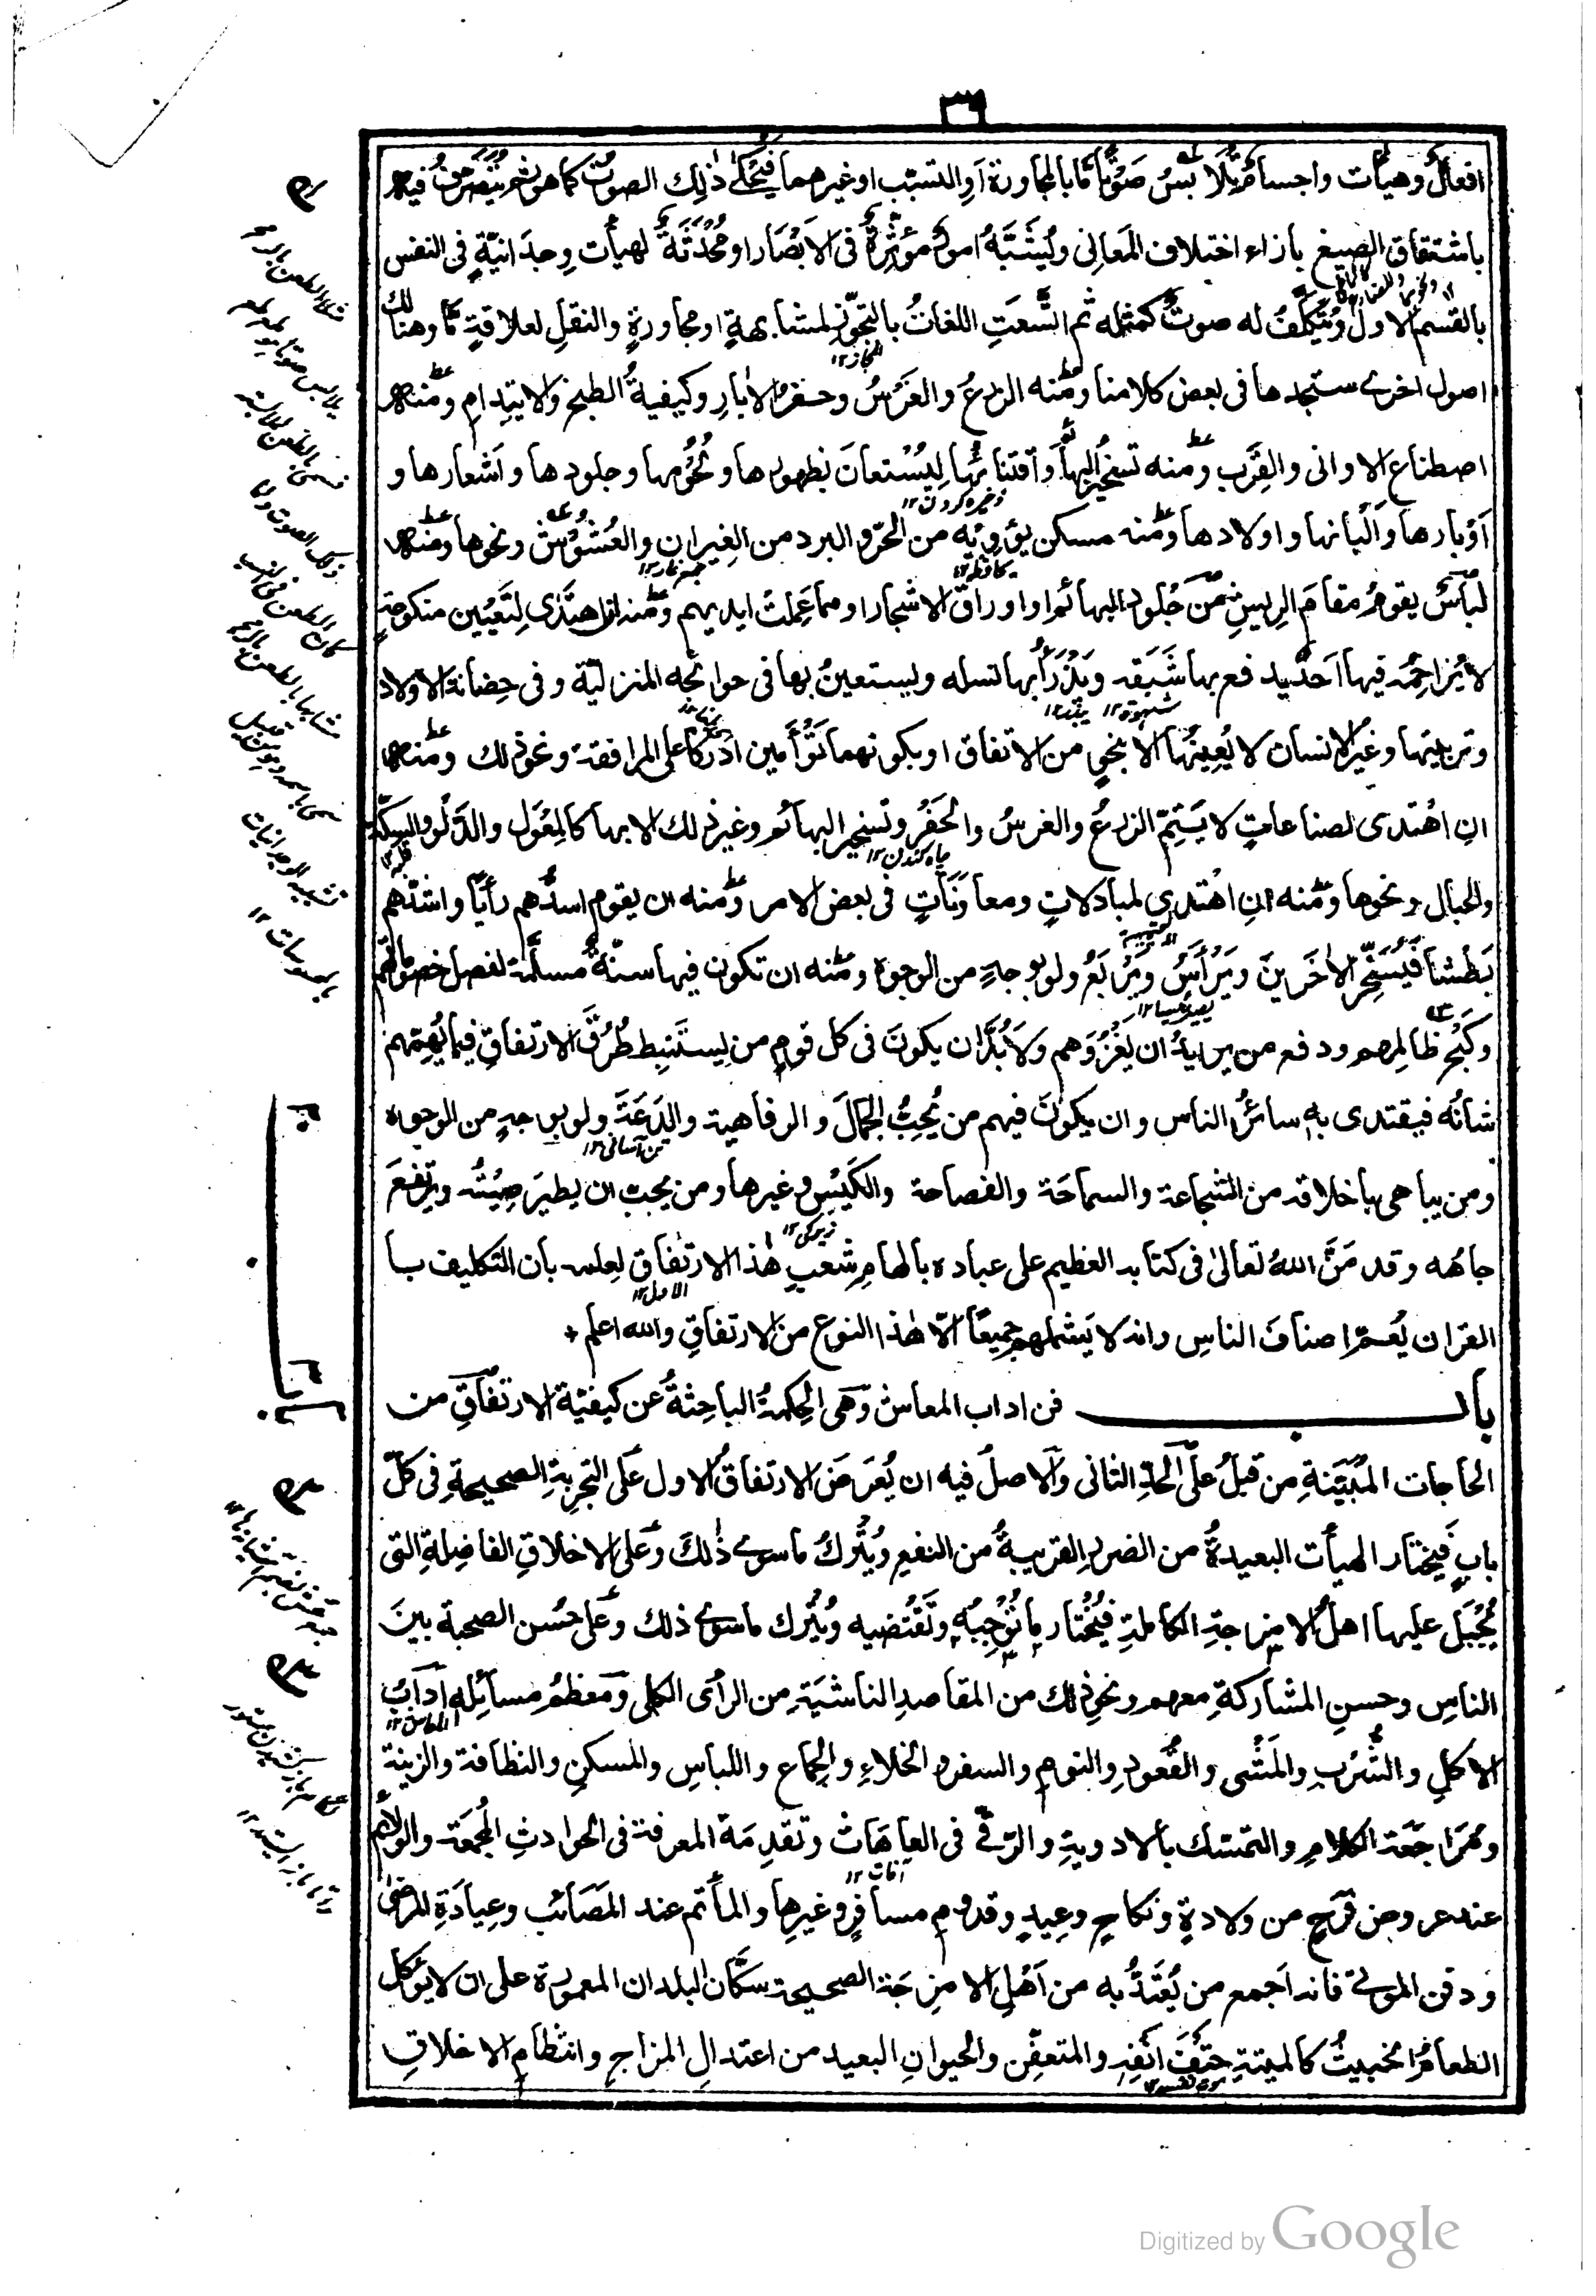 ٣٦
افعالٌ وهيأت واجسامٌ تلابسُ صَوْتًا مّا بالمجاورة اَوِ التسبّب او غيرهما فيُحكٰى ذٰلك الصوت كما هو ثم يُتصرّفُ فيه
باشتقاق الصيغ بازاء اختلاف المَعانِى ويُشَبَّهُ امورٌ مؤثِّرةٌ فى الاَبْصَار او مُحْدِثَةٌ لهيأت وِجدَانيّةٍ فى النفس
بالقسم الاول ويُتكلّفُ له صوتٌ كمثله ثم اتَّسعَتِ اللغاتُ بالتجوّز لمشابهةٍ او مجاورةٍ والنقلِ لعلاقةٍ مّا وهنالك
اصول اخرى ستجدها فى بعض كلامنا ومنه الزرعُ والغَرْسُ وحفرُ الاٰبارِ وكيفيةُ الطبخ والايتِدامِ ومنه
اصطناع الاوانى والقِرَب ومنه تسخيرُ البهائم واقتنائها لِيُسْتعانَ بظهورها ولُحُومها وجلودها واَشعارها و
اَوْبارها واَلْبانها واولادها ومنه مسكن يؤويه من الحرّ والبرد من الغِيران والعُشُوْش ونحوها ومنه
لباسٌ يقومُ مقامَ الرِيشِ من جُلود البهائم او اوراق الاشجار او مما عَمِلتْ ايديهم ومنه انِ اهتَدٰى لِتَعْيين منكوحةٍ
لا يُزاحِمُه فيها اَحدٌ يدفع بها شَبَقَه ويَذْرَأُ بها نسله ويستعينُ بها فى حوائجه المنزليّة وفى حِضانة الاولاد
وتربيتها وغيرُ الانسان لا يُعيِّنُها الا بنحوٍ من الاتفاق او بكونهما تَوْأَمين ادْرَكا على المرافقة ونحو ذلك ومنه
انِ اهْتَدى لصناعاتٍ لا يَتِمّ الزرعُ والغرسُ والحَفْرُ وتسخير البهائم وغير ذلك الا بها كالمِعْوَل والدَّلْو والسِكّة
والحبال ونحوها ومنه انِ اهْتدى لمبادلاتٍ ومعاوَنَاتٍ فى بعض الامر ومنه ان يقوم اسدُّهم رأيًا واشدّهم
بَطْشًا فَيُسَخِّر الاٰخَرينَ ويَرْأَسُ ويَرْبَعُ ولو بوجهٍ من الوجوه ومنه ان تكون فيها سنّةٌ مسلَّمة لفصل خصوماتهم
وكَبْحِ ظالمهم ودفع من يريد ان يغْزُوَهم ولا بُدَّ ان يكونَ فى كل قومٍ من يستَنبِط طُرُقَ الارتفاقِ فيما يُهِمّهم
شانُه فيقتدى به سائرُ الناس وان يكونَ فيهم من يُحِبُّ الجمالَ والرفاهية والدَعَةَ ولو بوجهٍ من الوجوه
ومن يباهى باخلاقه من الشجاعة والسماحَة والفصاحة والكَيْسِ وغيرها ومن يحب ان يطيرَ صِيْتُه ويرتفعَ
جاهُه وقد مَنَّ اللهُ تعالىٰ فى كتابه العظيم على عباده بالهامِ شعبِ هٰذا الارتفاق لعلمه بان التكليف با
القراٰن يَعُمّ اصنافَ الناسِ وانه لا يَشملهم جميعًا الّا هٰذا النوع من الارتفاقِ والله اعلم +
باب فن اداب المعاش وهى الحِكمةُ الباحِثةُ عن كيفيّة الارتفاقِ من
الحاجات المُبَيَّنةِ من قبلُ على الحدّ الثانى والاصلُ فيه ان يُعرَضَ الارتفاقُ الاول على التجرِبةِ الصحيحةِ فى كلّ
بابٍ فَيختار الهيأت البعيدةُ من الضررِ القريبةُ من النفعِ ويُتْرَكُ ما سوى ذٰلكَ وعَلَى الاخلاقِ الفاضِلةِ التى
يُجْبَل عليها اهلُ الامزجةِ الكاملةِ فيُختار ما تُوْجِبُه وتَقْتَضيه ويُتْرك ما سوى ذلك وعَلى حُسْن الصحبة بينَ
الناسِ وحسنِ المشاركةِ معهم ونحوِ ذلك من المقاصدِ الناشئةِ من الرأى الكلى ومعظمُ مسائِله اٰدابُ
الاكلِ والشُرْبِ والمَشْىِ والقُعودِ والنومِ والسفرِ والخلاءِ والجِماعِ واللباسِ والمسكنِ والنظافة والزينة
ومُرَاجَعَة الكلامِ والتمسّك بالادويةِ والرُّقى فى العاهَات وتقدِمَة المعرفة فى الحوادثِ المُجْمَعَة والولائم
عند عروض فَرَحٍ من ولادةٍ ونكاحٍ وعيدٍ وقدومِ مسافرٍ وغيرِها والمأتم عند المَصَائب وعِيادَةِ المرضٰى
ودفن الموتٰى فانه اَجمع من يُعْتَدُّ به من اَهْلِ الامزِجَة الصحيحة سكّان البلدان المعمورة على ان لا يؤكل
الطعام الخبيثُ كالميتةِ حتفَ انفِه والمتعفّن والحيوانِ البعيد من اعتدالِ المزاجِ وانتظامِ الاخلاقِ
Digitized by Google